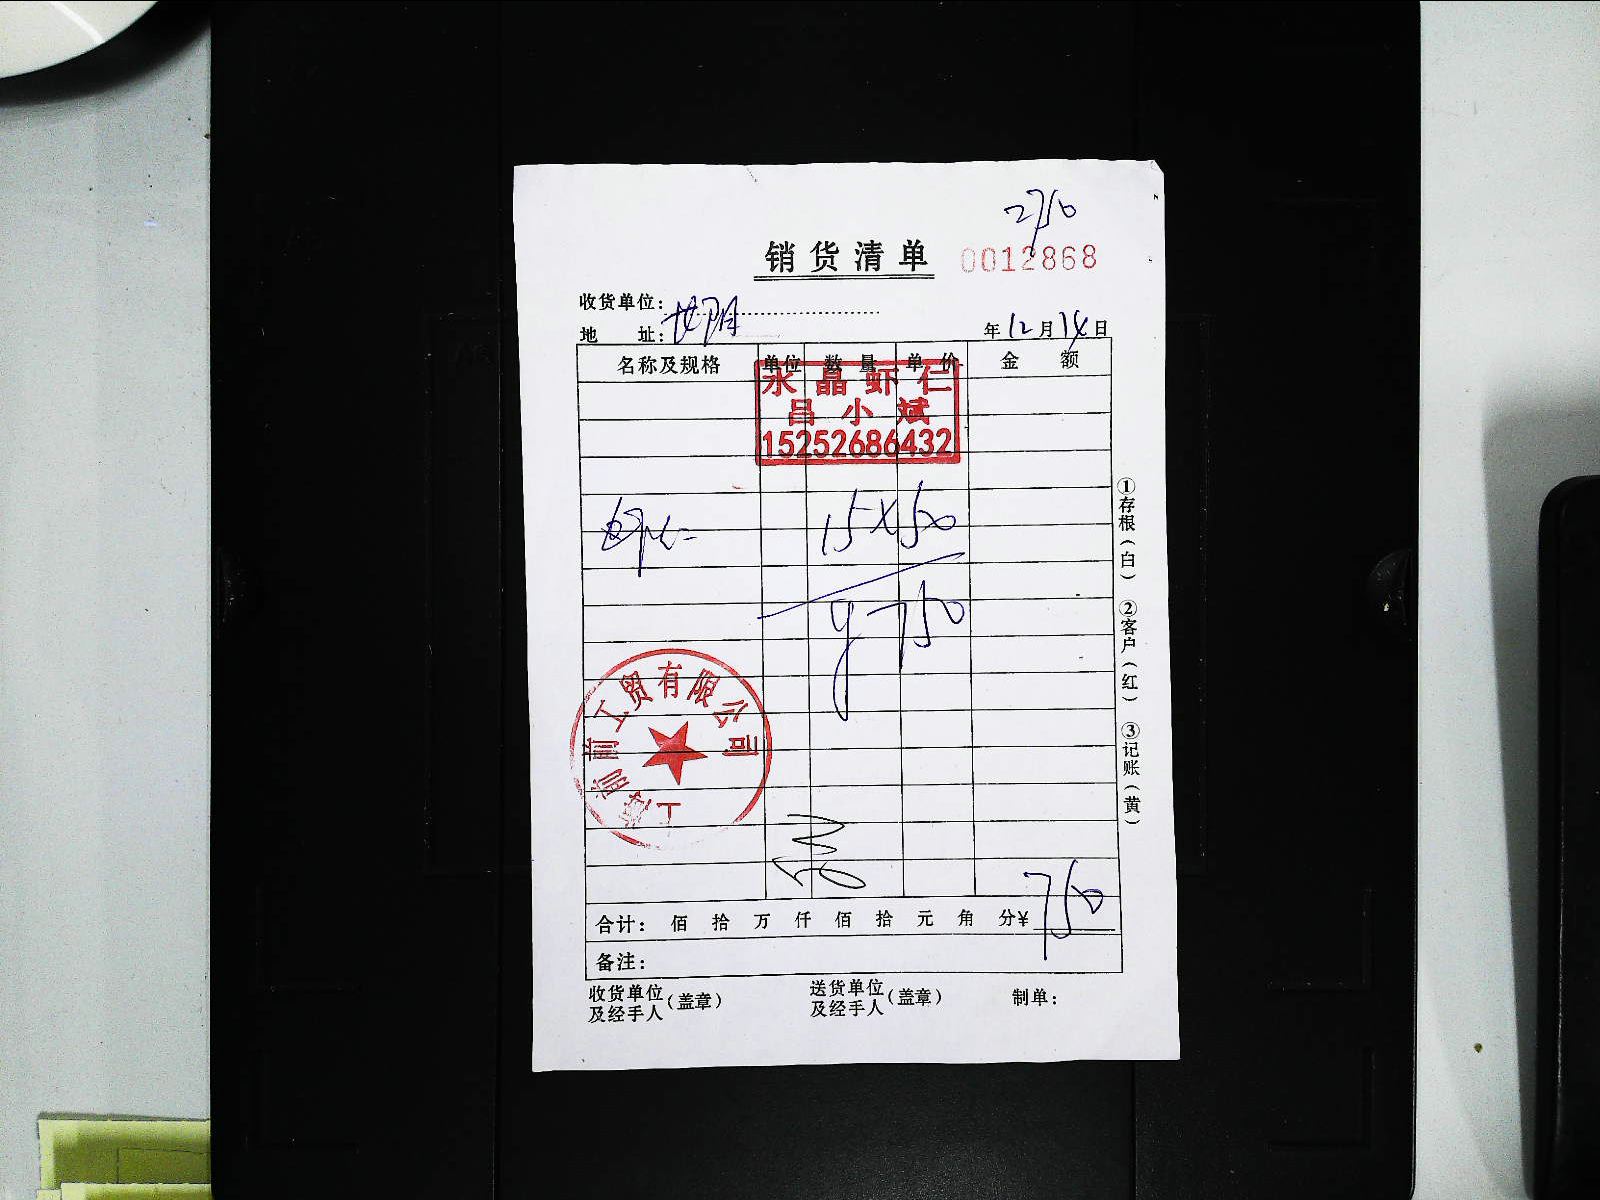 2750
销货清单 0012868
收货单位：
地 址： 年12月14日
名称及规格 单位 数量 单价 金额
永晶虾仁
吕小斌
15252686432
虾仁 15×50
750
上海前前工贸有限公司
合计： 佰 拾 万 仟 佰 拾 元 角 分¥ 750
备注：
收货单位及经手人（盖章） 送货单位及经手人（盖章） 制单：
①存根（白） ②客户（红） ③记账（黄）